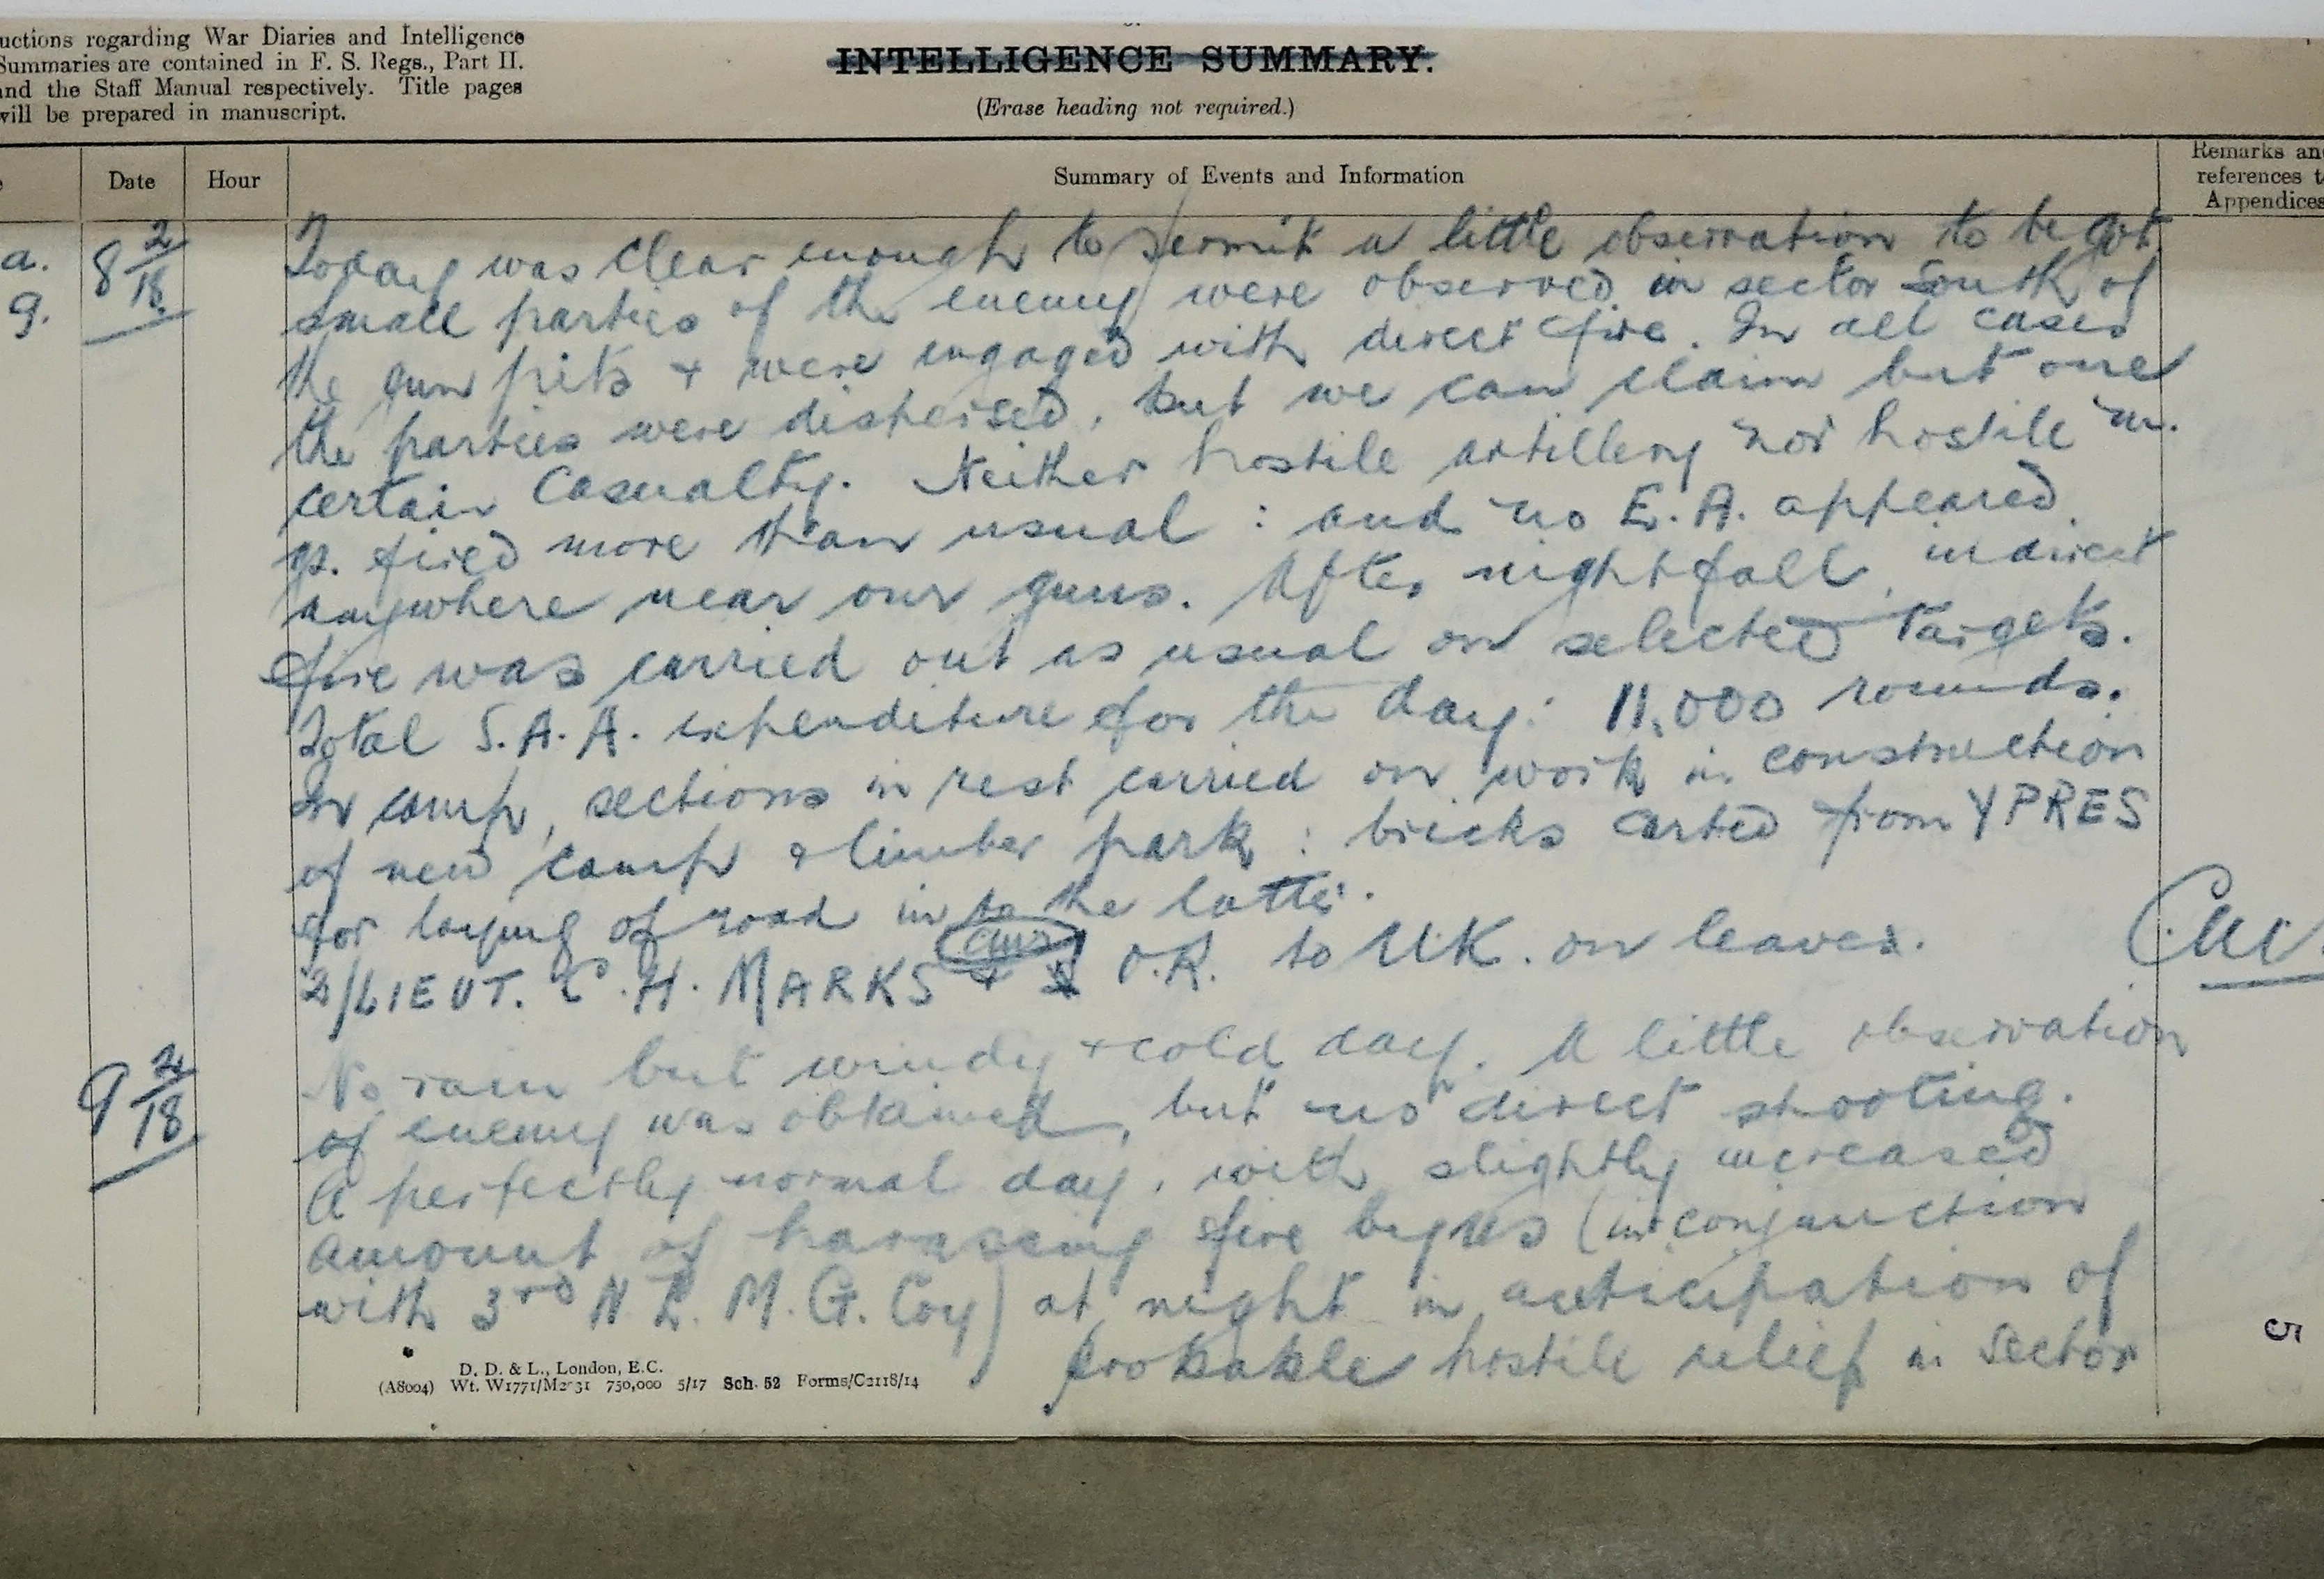 uctions regarding War Diaries and Intelligence
Summaries are contained in F. S. Regs., Part II.
and the Staff Manual respectively. Title pages
will be prepared in manuscript.
INTELLIGENCE SUMMARY.
(Erase heading not required.)
Date
Hour
Summary of Events and Information
Remarks and
references t
Appendices
a.
g.
8 2/18
Today was clear enough to permit a little observation to be got.
Small parties of the enemy were observed in sector South of
the gun pits + were engaged with direct fire. In all cases
the parties were dispersed, but we can claim but one
certain casualty. Neither hostile artillery nor hostile m.
gs. fired more than usual : and no E.A. appeared
anywhere near our guns. After nightfall, indirect
fire was carried out as usual on selected targets.
Total S.A.A. expenditure for the day: 11,000 rounds.
In camp, sections in rest carried on work in construction
of new camp & limber park : bricks carted from YPRES
for laying of road in to the latter.
2/LIEUT. C.H. MARKS + O.R. to U.K. on leave.
9 2/18
No rain but windy + cold day. A little observation
of enemy was obtained, but no direct shooting.
A perfectly normal day, with slightly increased
amount of harassing fire by us (in conjunction
with 3rd N.Z. M.G. Coy) at night in anticipation of
probable hostile relief in sector
5
D. D. & L., London, E.C.
(A8004) Wt. W1771/M2731 750,000 5/17 Sch. 52 Forms/C2118/14